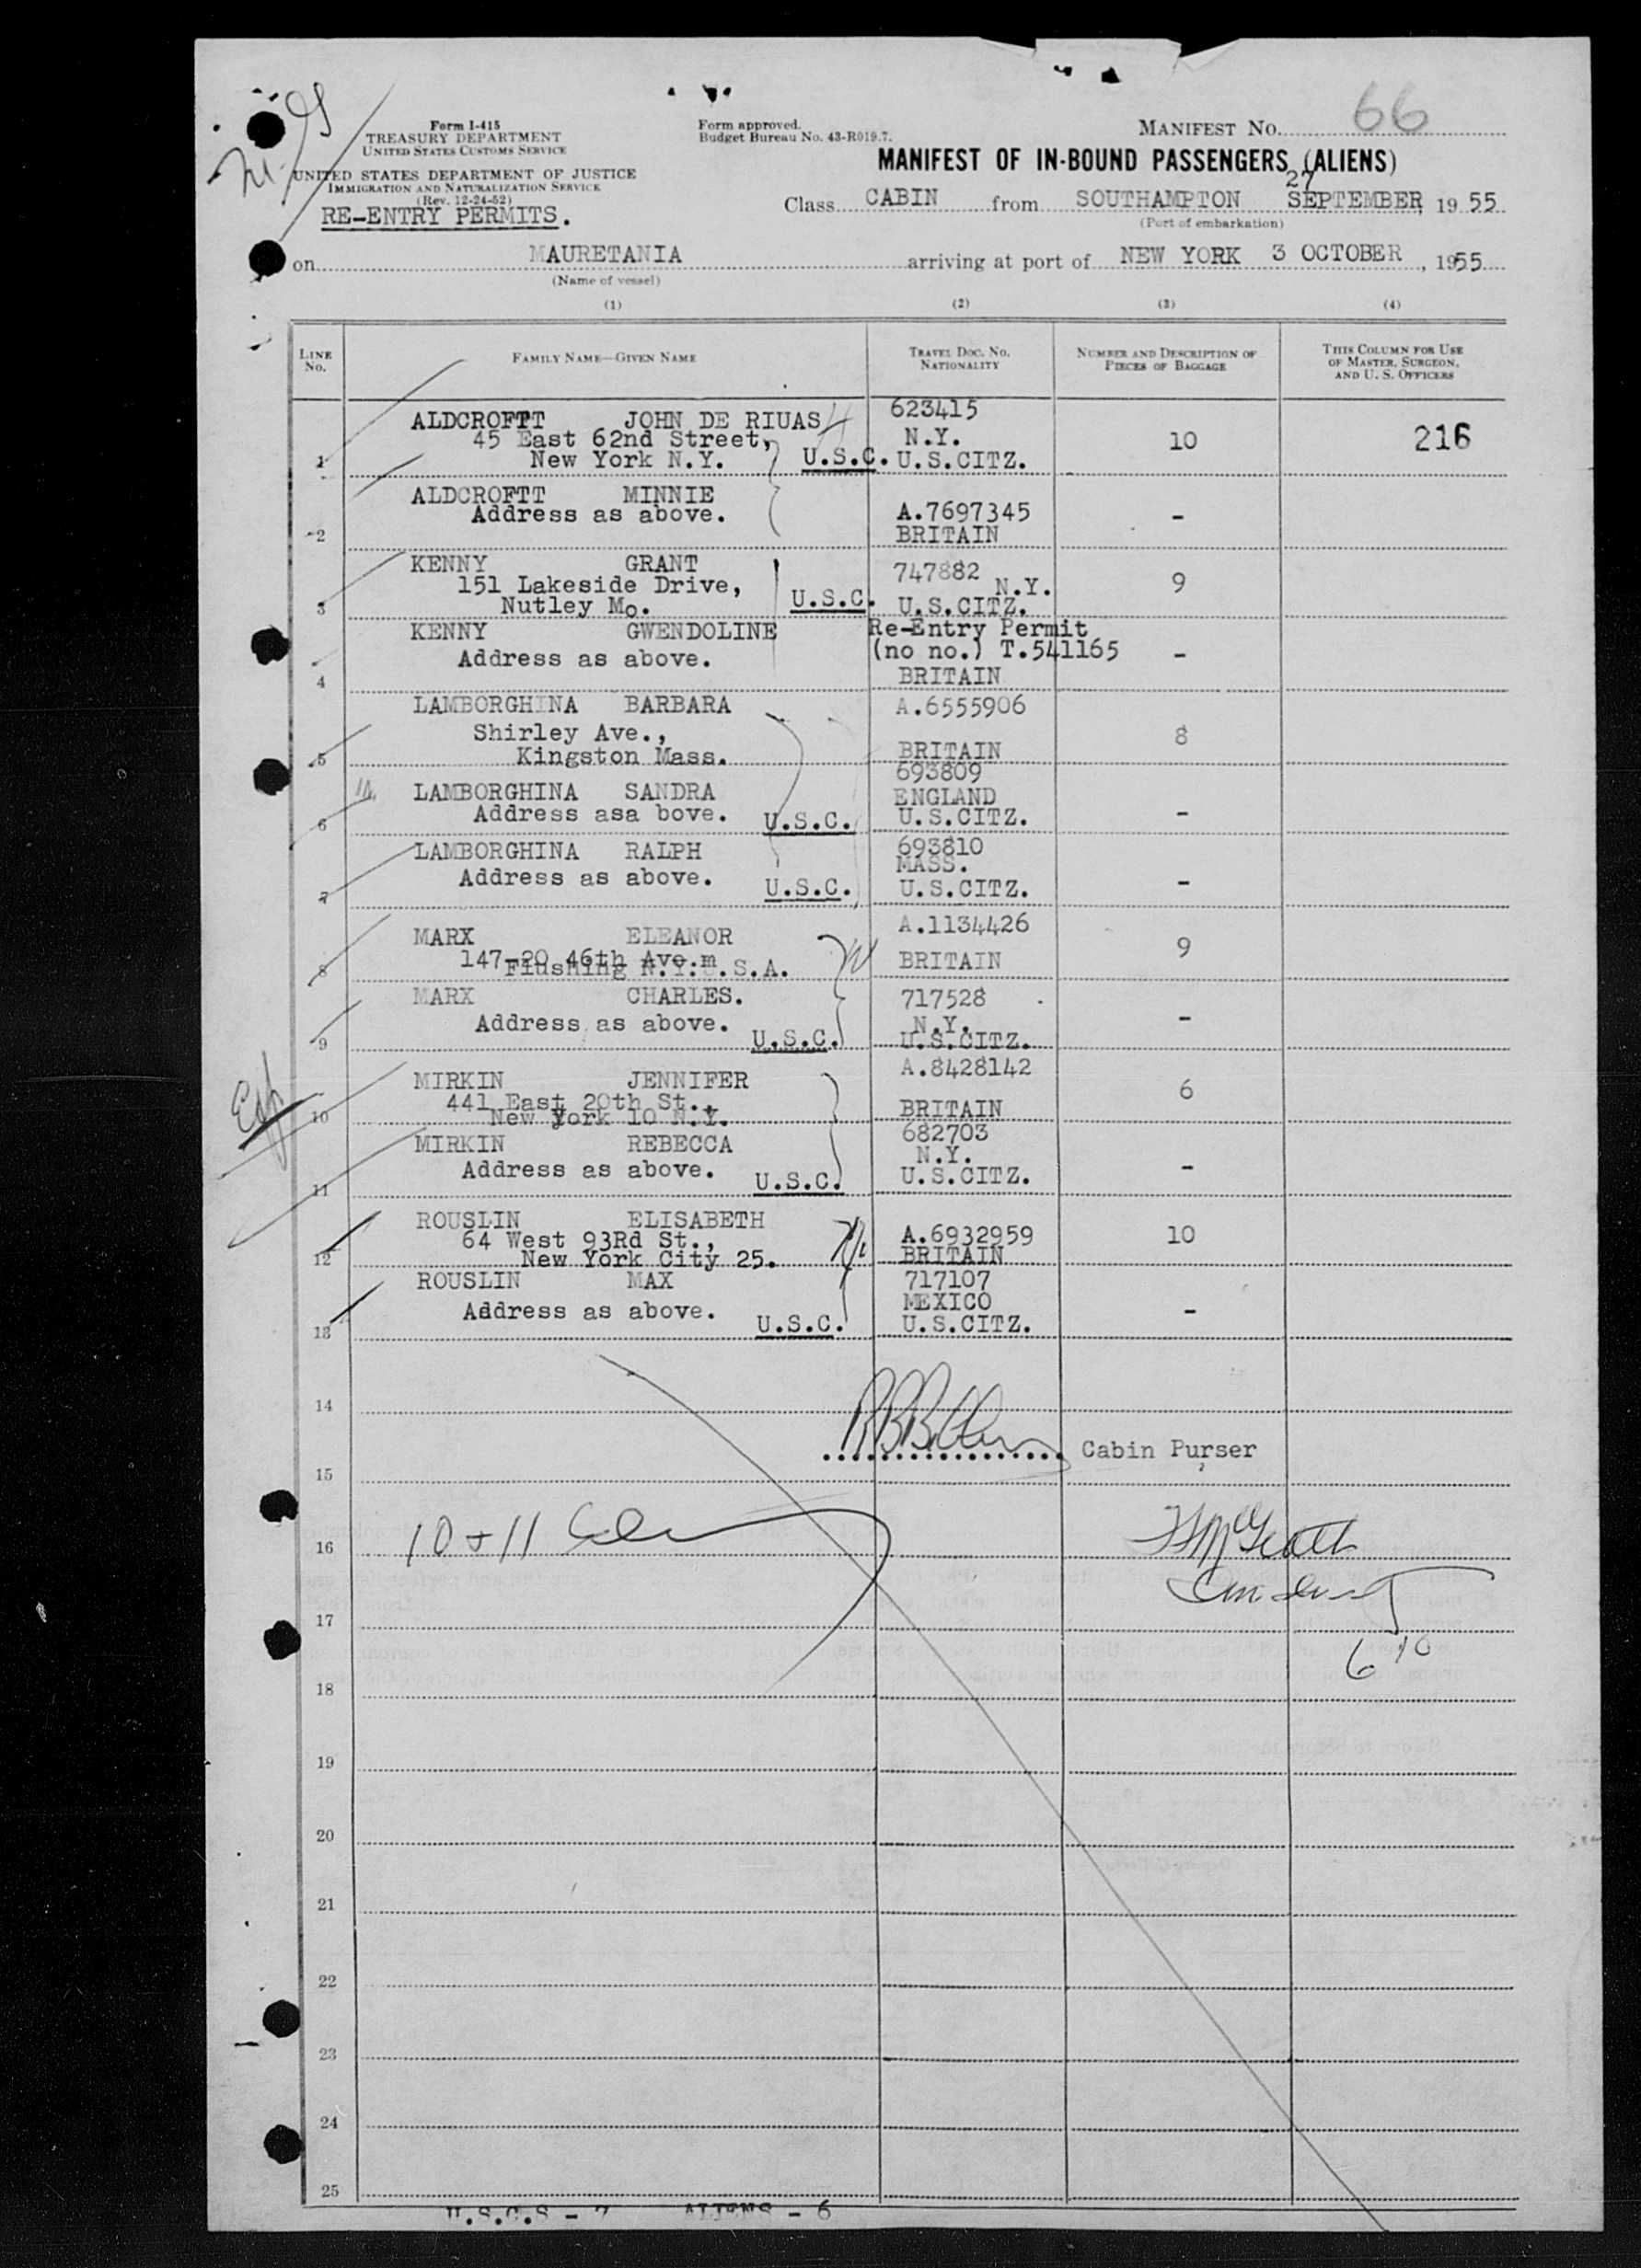 66
Form I-415
TREASURY DEPARTMENT
UNITED STATES CUSTOMS SERVICE
UNITED STATES DEPARTMENT OF JUSTICE
IMMIGRATION AND NATURALIZATION SERVICE
(Rev. 12-24-52)
RE-ENTRY PERMITS.
Form approved.
Budget Bureau No. 43-R019.7.
MANIFEST NO.
MANIFEST OF IN-BOUND PASSENGERS (ALIENS)
27
Class CABIN from SOUTHAMPTON SEPTEMBER, 1955
(Port of embarkation)
on MAURETANIA arriving at port of NEW YORK 3 OCTOBER, 1955
(Name of vessel)
(1) (2) (3) (4)
LINE No. FAMILY NAME—GIVEN NAME TRAVEL DOC. NO. NATIONALITY NUMBER AND DESCRIPTION OF PIECES OF BAGGAGE THIS COLUMN FOR USE OF MASTER, SURGEON, AND U. S. OFFICERS
ALDCROFTT JOHN DE RIUAS 623415
45 East 62nd Street, N.Y. 10 216
1 New York N.Y. U.S.C. U.S.CITZ.
ALDCROFTT MINNIE
Address as above. A.7697345 -
2 BRITAIN
KENNY GRANT 747882
151 Lakeside Drive, N.Y. 9
3 Nutley Mo. U.S.C. U.S.CITZ.
KENNY GWENDOLINE Re-Entry Permit
Address as above. (no no.) T.541165 -
4 BRITAIN
LAMBORGHINA BARBARA A.6555906
Shirley Ave., 8
5 Kingston Mass. BRITAIN
693809
LAMBORGHINA SANDRA ENGLAND
6 Address asa bove. U.S.C. U.S.CITZ. -
LAMBORGHINA RALPH 693810
MASS.
7 Address as above. U.S.C. U.S.CITZ. -
A.1134426
MARX ELEANOR 9
147-20 46th Ave.m BRITAIN
8 Flushing N.Y.U.S.A.
MARX CHARLES. 717528
Address as above. N.Y. -
9 U.S.C. U.S.CITZ.
A.8428142
MIRKIN JENNIFER 6
441 East 20th St., BRITAIN
10 New york 10 N.Y.
682703
MIRKIN REBECCA N.Y.
Address as above. U.S.C. U.S.CITZ. -
11
ROUSLIN ELISABETH
64 West 93Rd St., A.6932959 10
12 New York City 25. BRITAIN
ROUSLIN MAX 717107
Address as above. MEXICO -
13 U.S.C. U.S.CITZ.
14
Cabin Purser
15
16 10 + 11
17
6 10
18
19
20
21
22
23
24
25
U.S.C.S - 7 ALIENS - 6